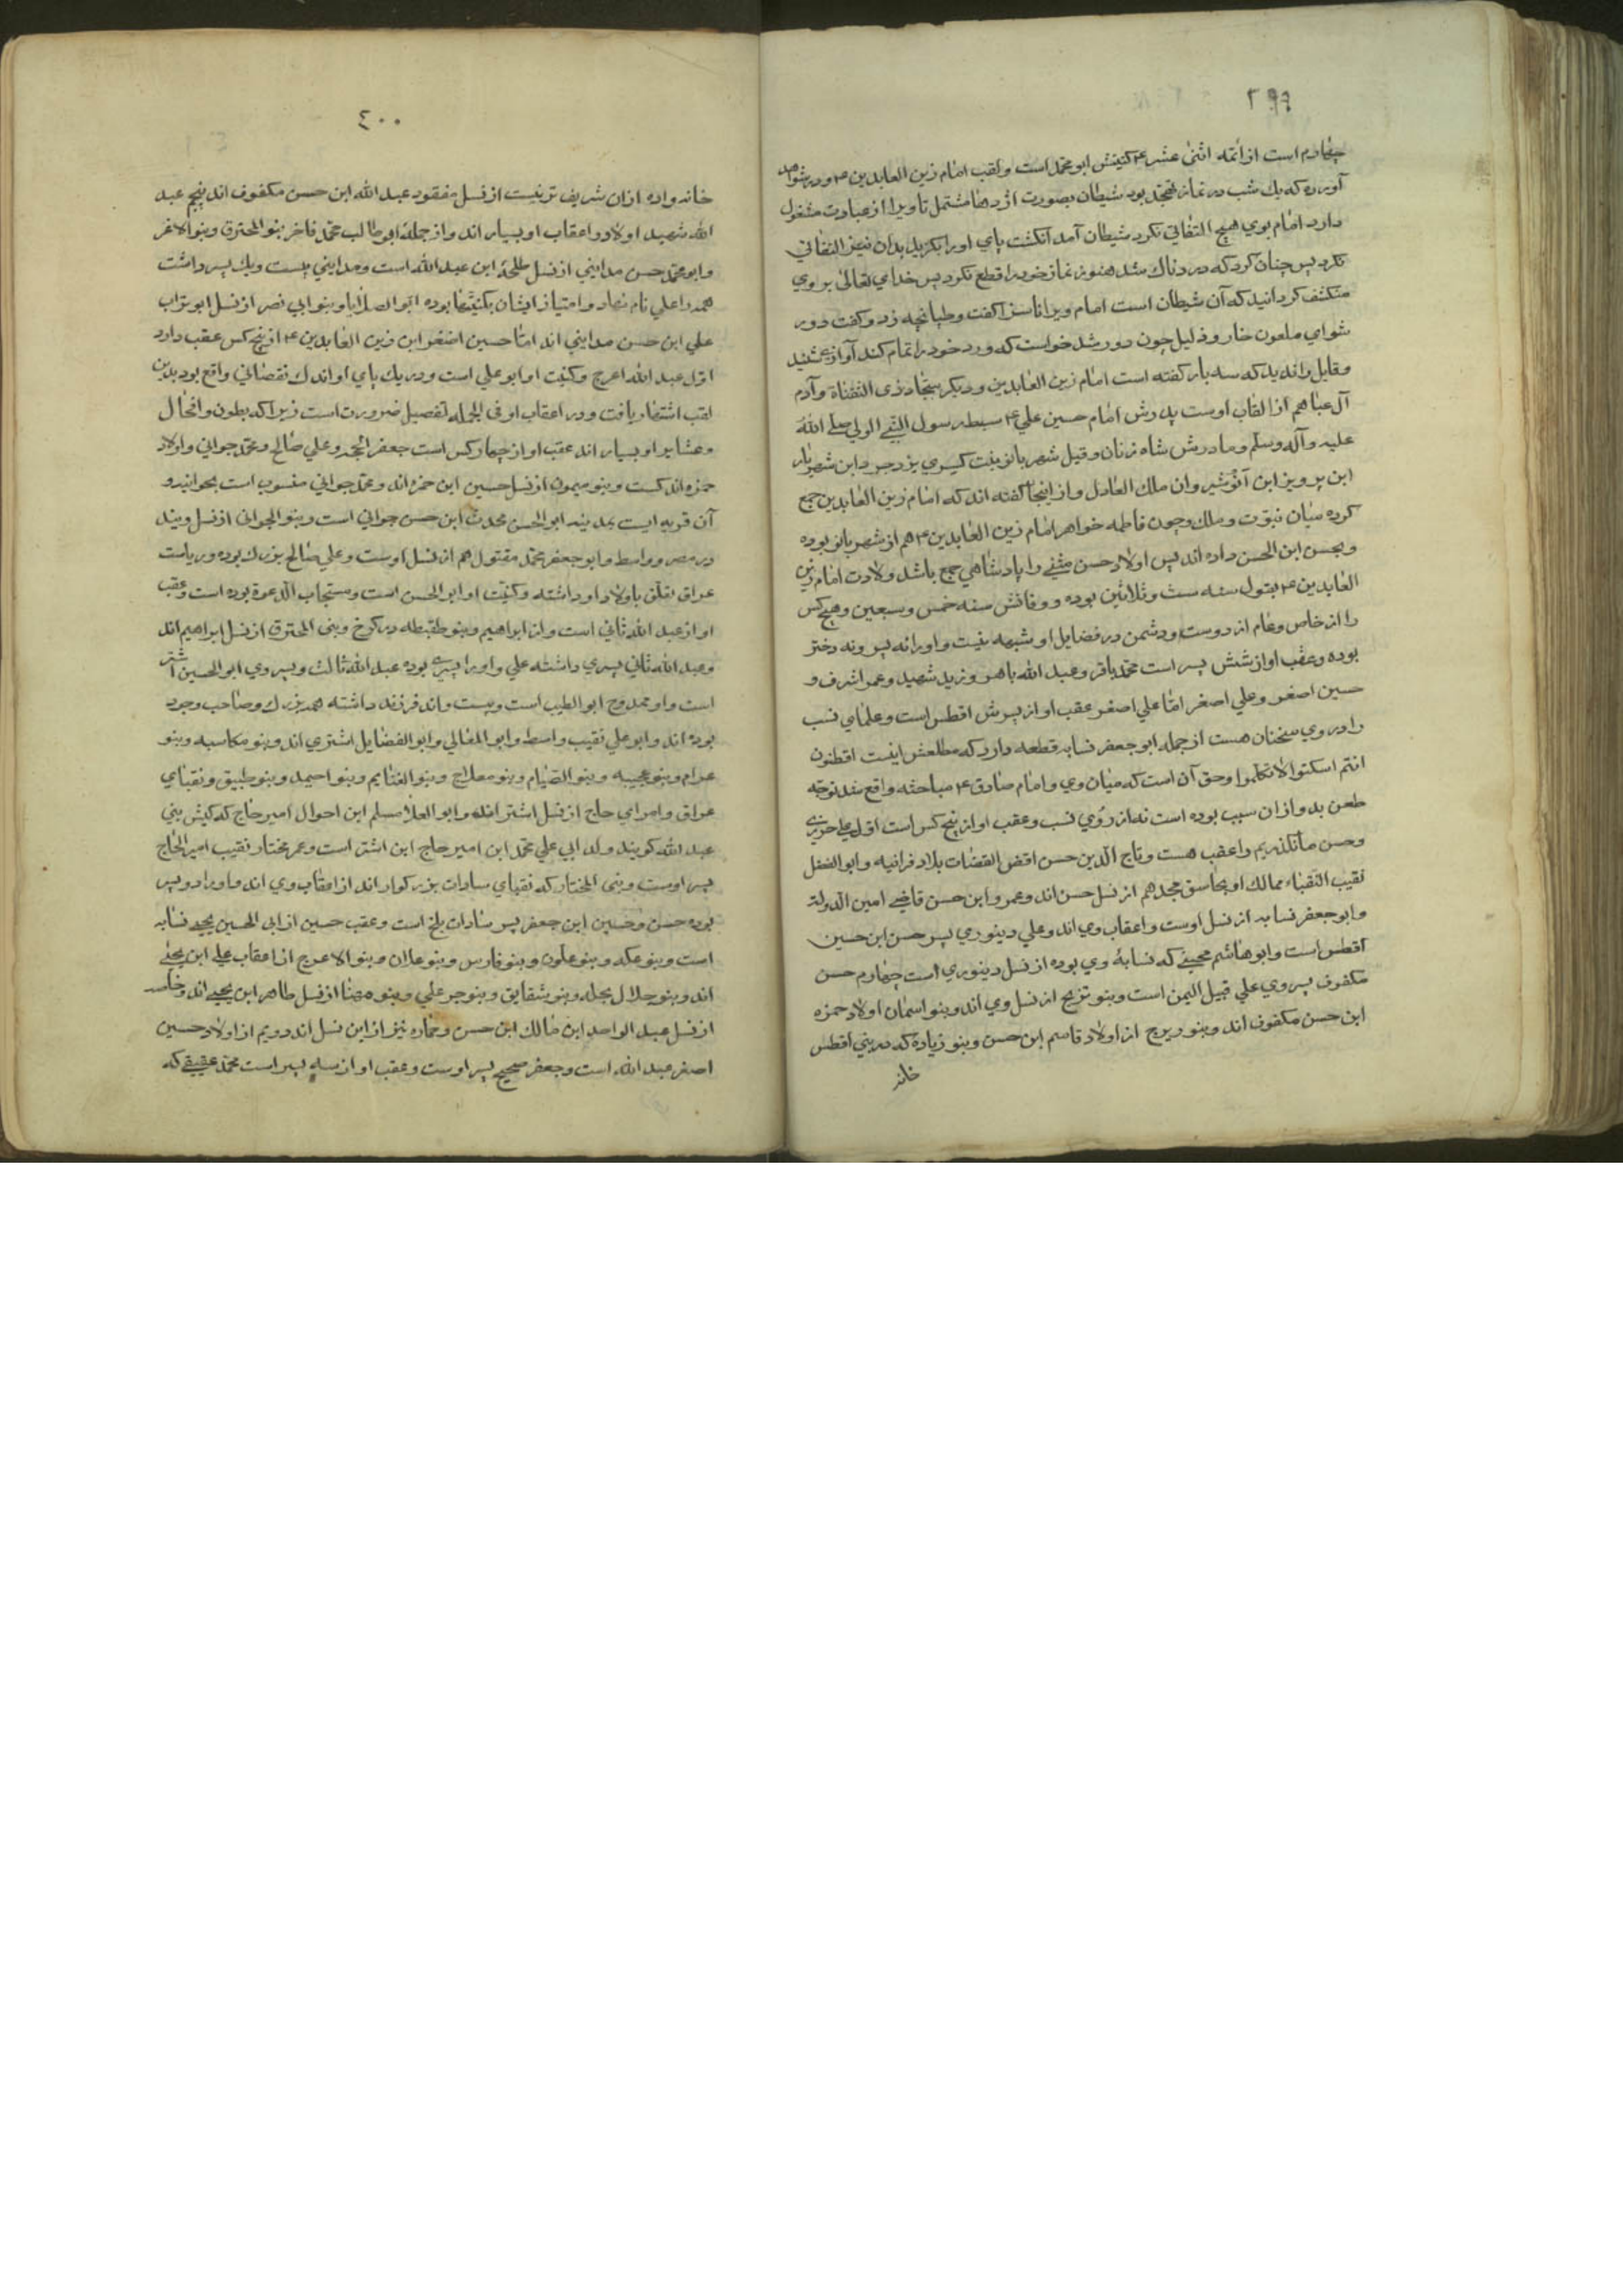 ٣٩٩
چهارم است از ائمه اثنی عشر ع کنیتش ابو محمد است ولقب امام زین العابدین ع ودر شواهد
آورده که یك شب در نماز تهجد بود شیطان بصورت اژدها متمثل تا ویرا از عبادت مشغول
دارد امام بوی هیچ التفاتی نکرد شیطان آمد انگشت پای اورا بگزید بدان نیز التفاتی
نکرد پس چنان کرد که دردناك شد هنوز نماز خود را قطع نکرد پس خدای تعالی بروی
منکشف گردانید که آن شیطان است امام ویرا ناسزا گفت وطپانچه زد وگفت دور
شو ای ملعون خوار وذلیل چون دور شد خواست که ورد خود را تمام کند آوازی شنید
وقایل را ندید که سه بار گفته است امام زین العابدین ودیگر سجاد وذی الثفنات وآدم
آل عبا هم از القاب اوست پدرش امام حسین علی ع سبط رسول النبی الولی صلی الله
علیه وآله وسلم ومادرش شاه زنان وقیل شهربانو بنت کسری یزدجرد ابن شهریار
ابن پرویز ابن انوشیروان ملك العادل واز اینجا گفته اند که امام زین العابدین جمع
کرده میان نبوت وملك وچون فاطمه خواهر امام زین العابدین ع هم از شهربانو بوده
وبحسن ابن الحسن داده اند پس اولاد حسن مثنی را پادشاهی جمع باشد ولادت امام زین
العابدین ع بقول سنه ست وثلاثین بوده ووفاتش سنه خمس وسبعین وهیچ کس
را از خاص وعام از دوست ودشمن در فضایل او شبهه نیست واورا نه پسر ونه دختر
بوده وعقب او از شش پسر است محمد باقر وعبد الله باهر وزید شهید وعمر اشرف و
حسین اصغر وعلی اصغر اما علی اصغر عقب او از پسرش افطس است وعلمای نسب
را در وی سخنان هست از جمله ابو جعفر نسابه قطعه دارد که مطلعش اینست افطسون
انتم اسکتوا لا تکلموا وحق آن است که میان وی وامام صادق ع مباحثه واقع شد توجه
طعن بدو از ان سبب بوده است نه از روی نسب وعقب او از پنج کس است اول علی حریری
وحسن ما نکدیم را عقب هست وتاج الدین حسن اقضی القضات بلاد فراتیه وابو الفضل
نقیب النقباء ممالك مجد هم از نسل حسن اند وعمر وابن حسن قاضی امین الدوله
وابو جعفر نسابه از نسل اوست واعقاب وی اند وعلی دینوری پسر حسن ابن حسین
افطس است وابو هاشم مجتبی که نسابه وی بوده از نسل دینوری است چهارم حسن
مکفوف پسر وی علی قتیل الیمن است وبنو تزنج از نسل وی اند وبنو اسمان اولاد حمزه
ابن حسن مکفوف اند وبنو زبرج از اولاد قاسم ابن حسن وبنو زیاده که در بنی افطس
خانه
٤٠٠
خانه واده ازان شریف تر نیست از نسل مفقود عبد الله ابن حسن مکفوف اند پنجم عبد
الله شهید اولاد واعقاب او بسیار اند واز جمله ابو طالب محمد فاخر بنو المحترق وبنو الاغر
وابو محمد حسن مداینی از نسل طلحه ابن عبد الله است ومداینی بیست ویك پسر داشت
همه را علی نام نهاد وامتیاز ایشان بکنیتها بوده ابو الصلایا وبنو ابی نصر از نسل ابو تراب
علی ابن حسن مداینی اند اما حسین اصغر ابن زین العابدین ع از پنج کس عقب دارد
اول عبد الله اعرج وکنیت او ابو علی است ودر یك پای او اندك نقصانی واقع بود بدین
لقب اشتهار یافت ودر اعقاب او فی الجمله تفصیل ضرورت است زیرا که بطون وافخال
وعشایر او بسیار اند عقب او از چهار کس است جعفر الحجه وعلی صالح ومحمد جوانی واولاد
حمزه اند کست وبنو میمون از نسل حسین ابن حمزه اند ومحمد جوانی منسوب است بجوانیه و
آن قریه ایست بمدینه ابو الحسن محدث ابن حسن جوانی است وبنو الجوانی از نسل ویند
در مصر وواسط وابو جعفر محمد مقتول هم از نسل اوست وعلی صالح بزرك بوده وریاست
عراق تعلق باولاد او داشته وکنیت او ابو الحسن است ومستجاب الدعوة بوده است وعقب
او از عبد الله ثانی است وابن ابراهیم وبنو طقطقه در کرخ وبنی المحترق از نسل ابراهیم اند
وعبد الله ثانی پسری داشته علی واورا پسری بوده عبد الله ثالث وپسر وی ابو الحسین اشتر
است واو ممدوح ابو الطیب است وبیست واند فرزند داشته همه بزرك وصاحب وجود
بوده اند وابو علی نقیب واسط وابو المعالی وابو الفضایل اشتری اند وبنو مکانسه وبنو
عرام وبنو عجیبه وبنو الصیام وبنو معلاج وبنو الغنایم وبنو احیمد وبنو طبیق ونقبای
عراق وامرای حاج از نسل اشتر اند وابو العلا مسلم ابن احوال امیر حاج که کبش بنی
عبد الله گویند ولد ابی علی محمد ابن امیر حاج ابن اشتر است وعمر مختار نقیب امیر الحاج
پسر اوست وبنی المختار که نقبای سادات بزرگوار اند از اعقاب وی اند واورا دو پسر
بوده حسن وحسین ابن جعفر پسر سادات بلخ است وعقب حسین از ابی الحسین یحیی نسابه
است وبنو عکه وبنو علون وبنو فارس وبنو علان وبنو الاعرج از اعقاب علی ابن یحیی
اند وبنو جلال بحله وبنو شقایق وبنو جر علی وبنو مهنا از نسل طاهر ابن یحیی اند وخاصه
از نسل عبد الواحد ابن مالك ابن حسن وحمازه نیز از این نسل اند دویم از اولاد حسین
اصغر عبد الله است وجعفر صحیح پسر اوست وعقب او از سه پسر است محمد عقیقی که